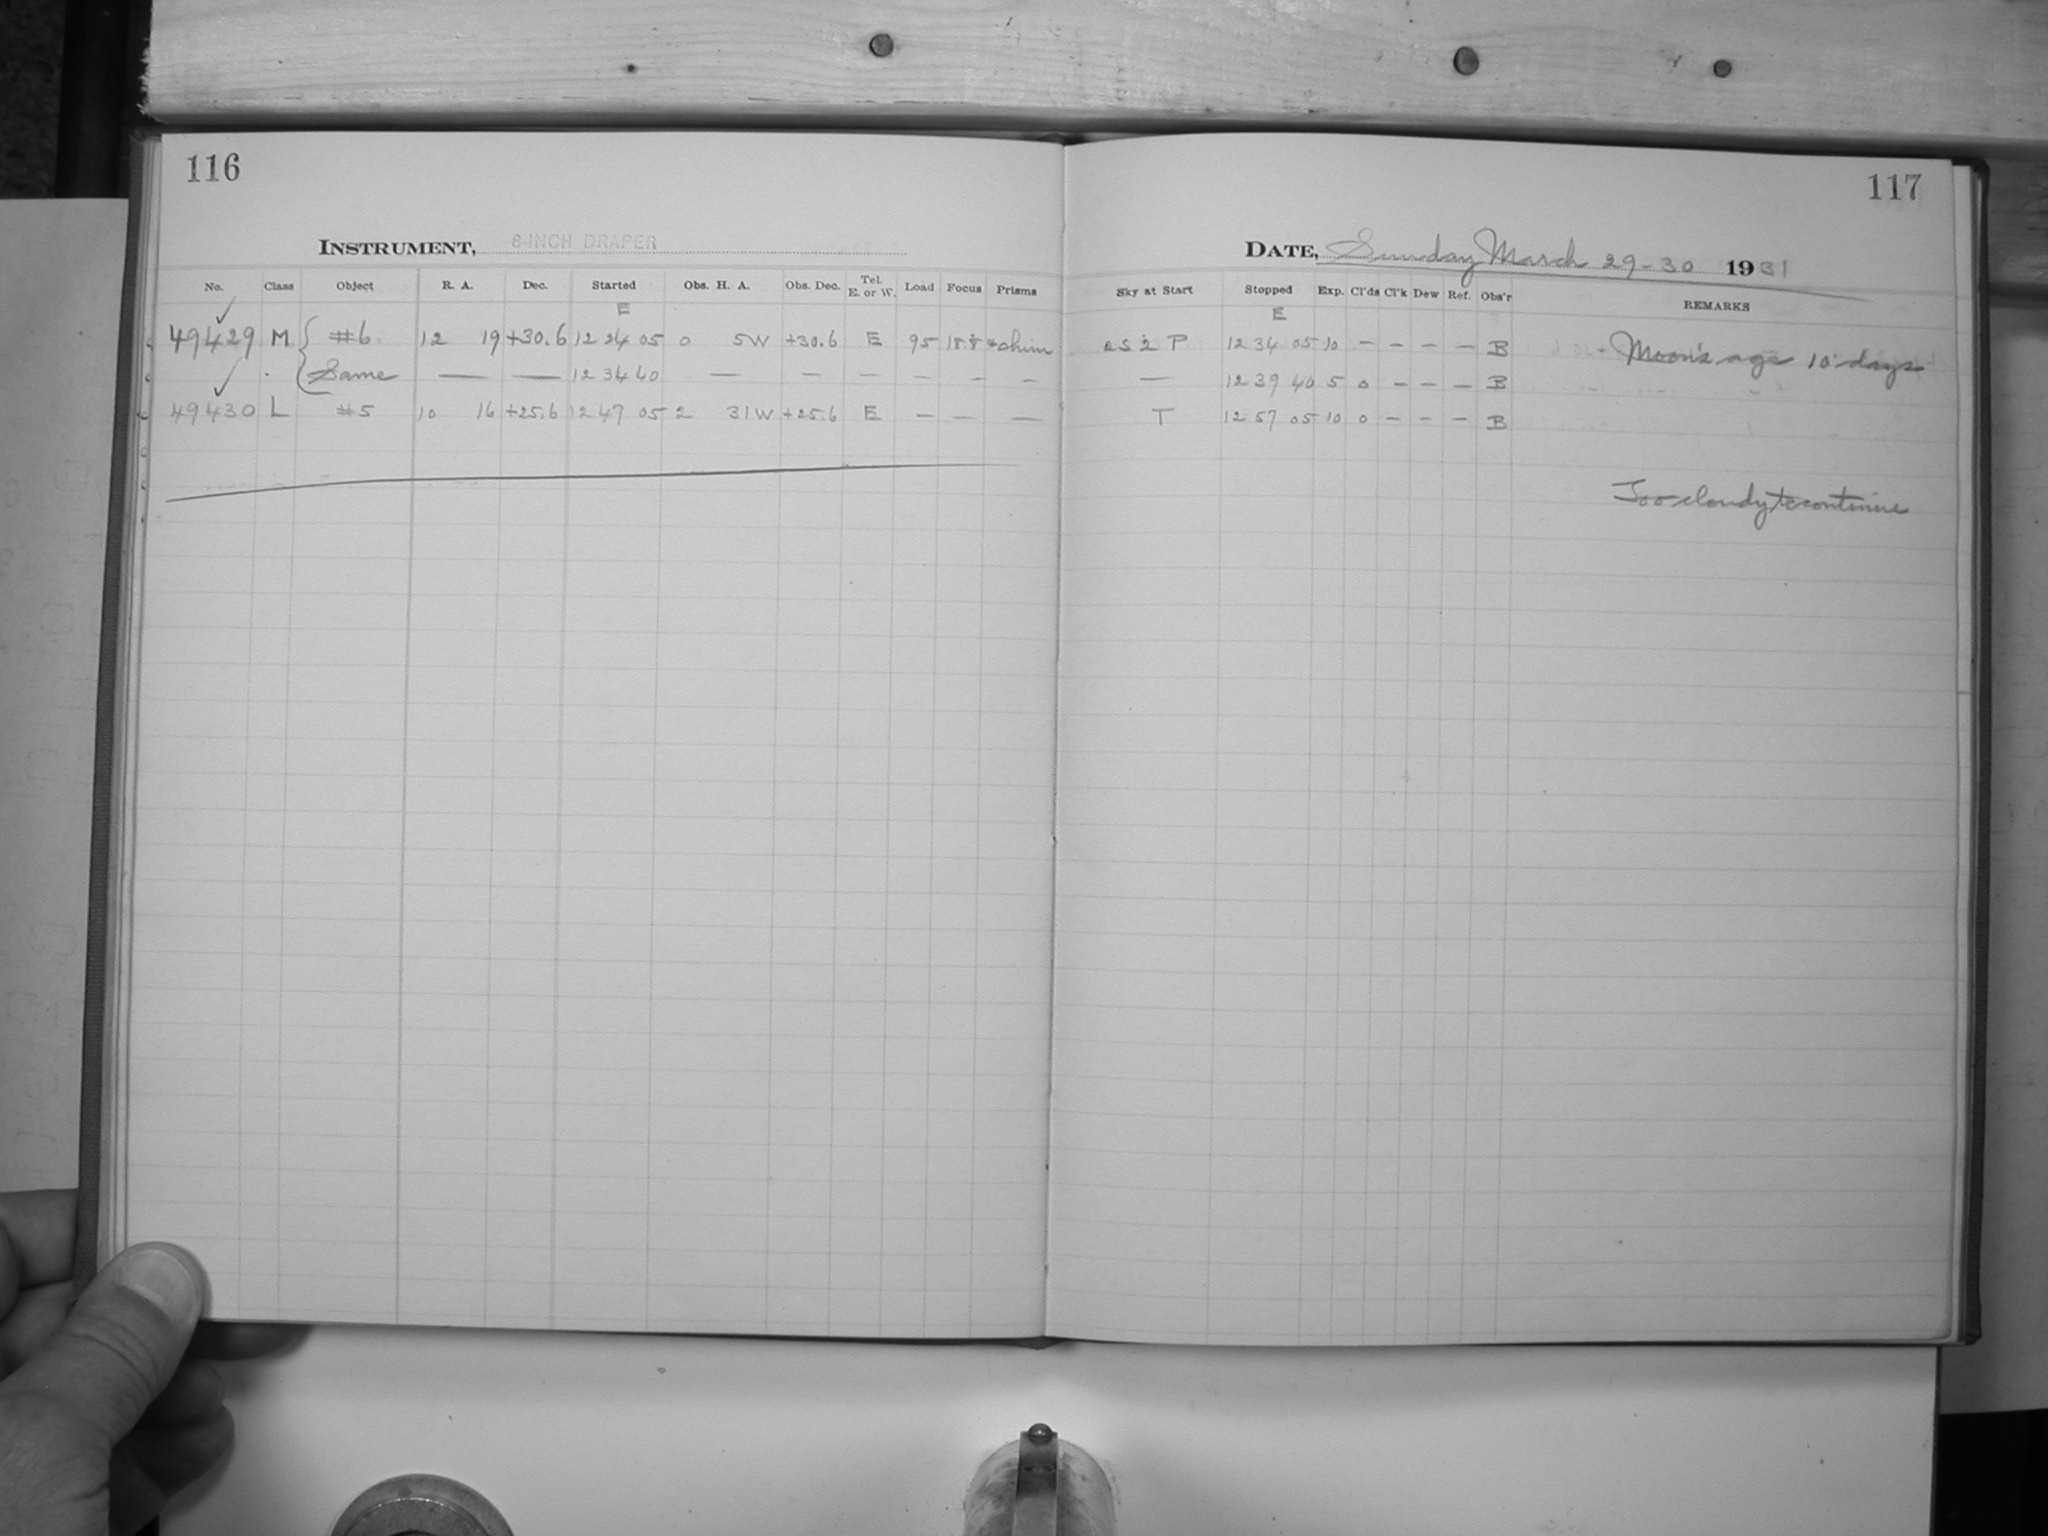 116
INSTRUMENT, 8-INCH DRAPER
No. Class Object R. A. Dec. Started Obs. H. A. Obs. Dec. Tel. E. or W. Load Focus Prisms
E
49429 M #6 12 19 +30.6 12 24 05 0 5W +30.6 E 95 shim
Same — — 12 34 40 — — — — — —
49430 L #5 10 16 +25.6 12 47 05 2 31W +25.6 E — — —
117
DATE, Sunday March 29-30 1931
Sky at Start Stopped Exp. Cl'ds Cl'k Dew Ref. Obs'r REMARKS
E
P 12 34 05 10 — — — — B Moon's age 10 days
— 12 39 40 5 0 — — — B
T 12 57 05 10 0 — — — B
Too cloudy to continue